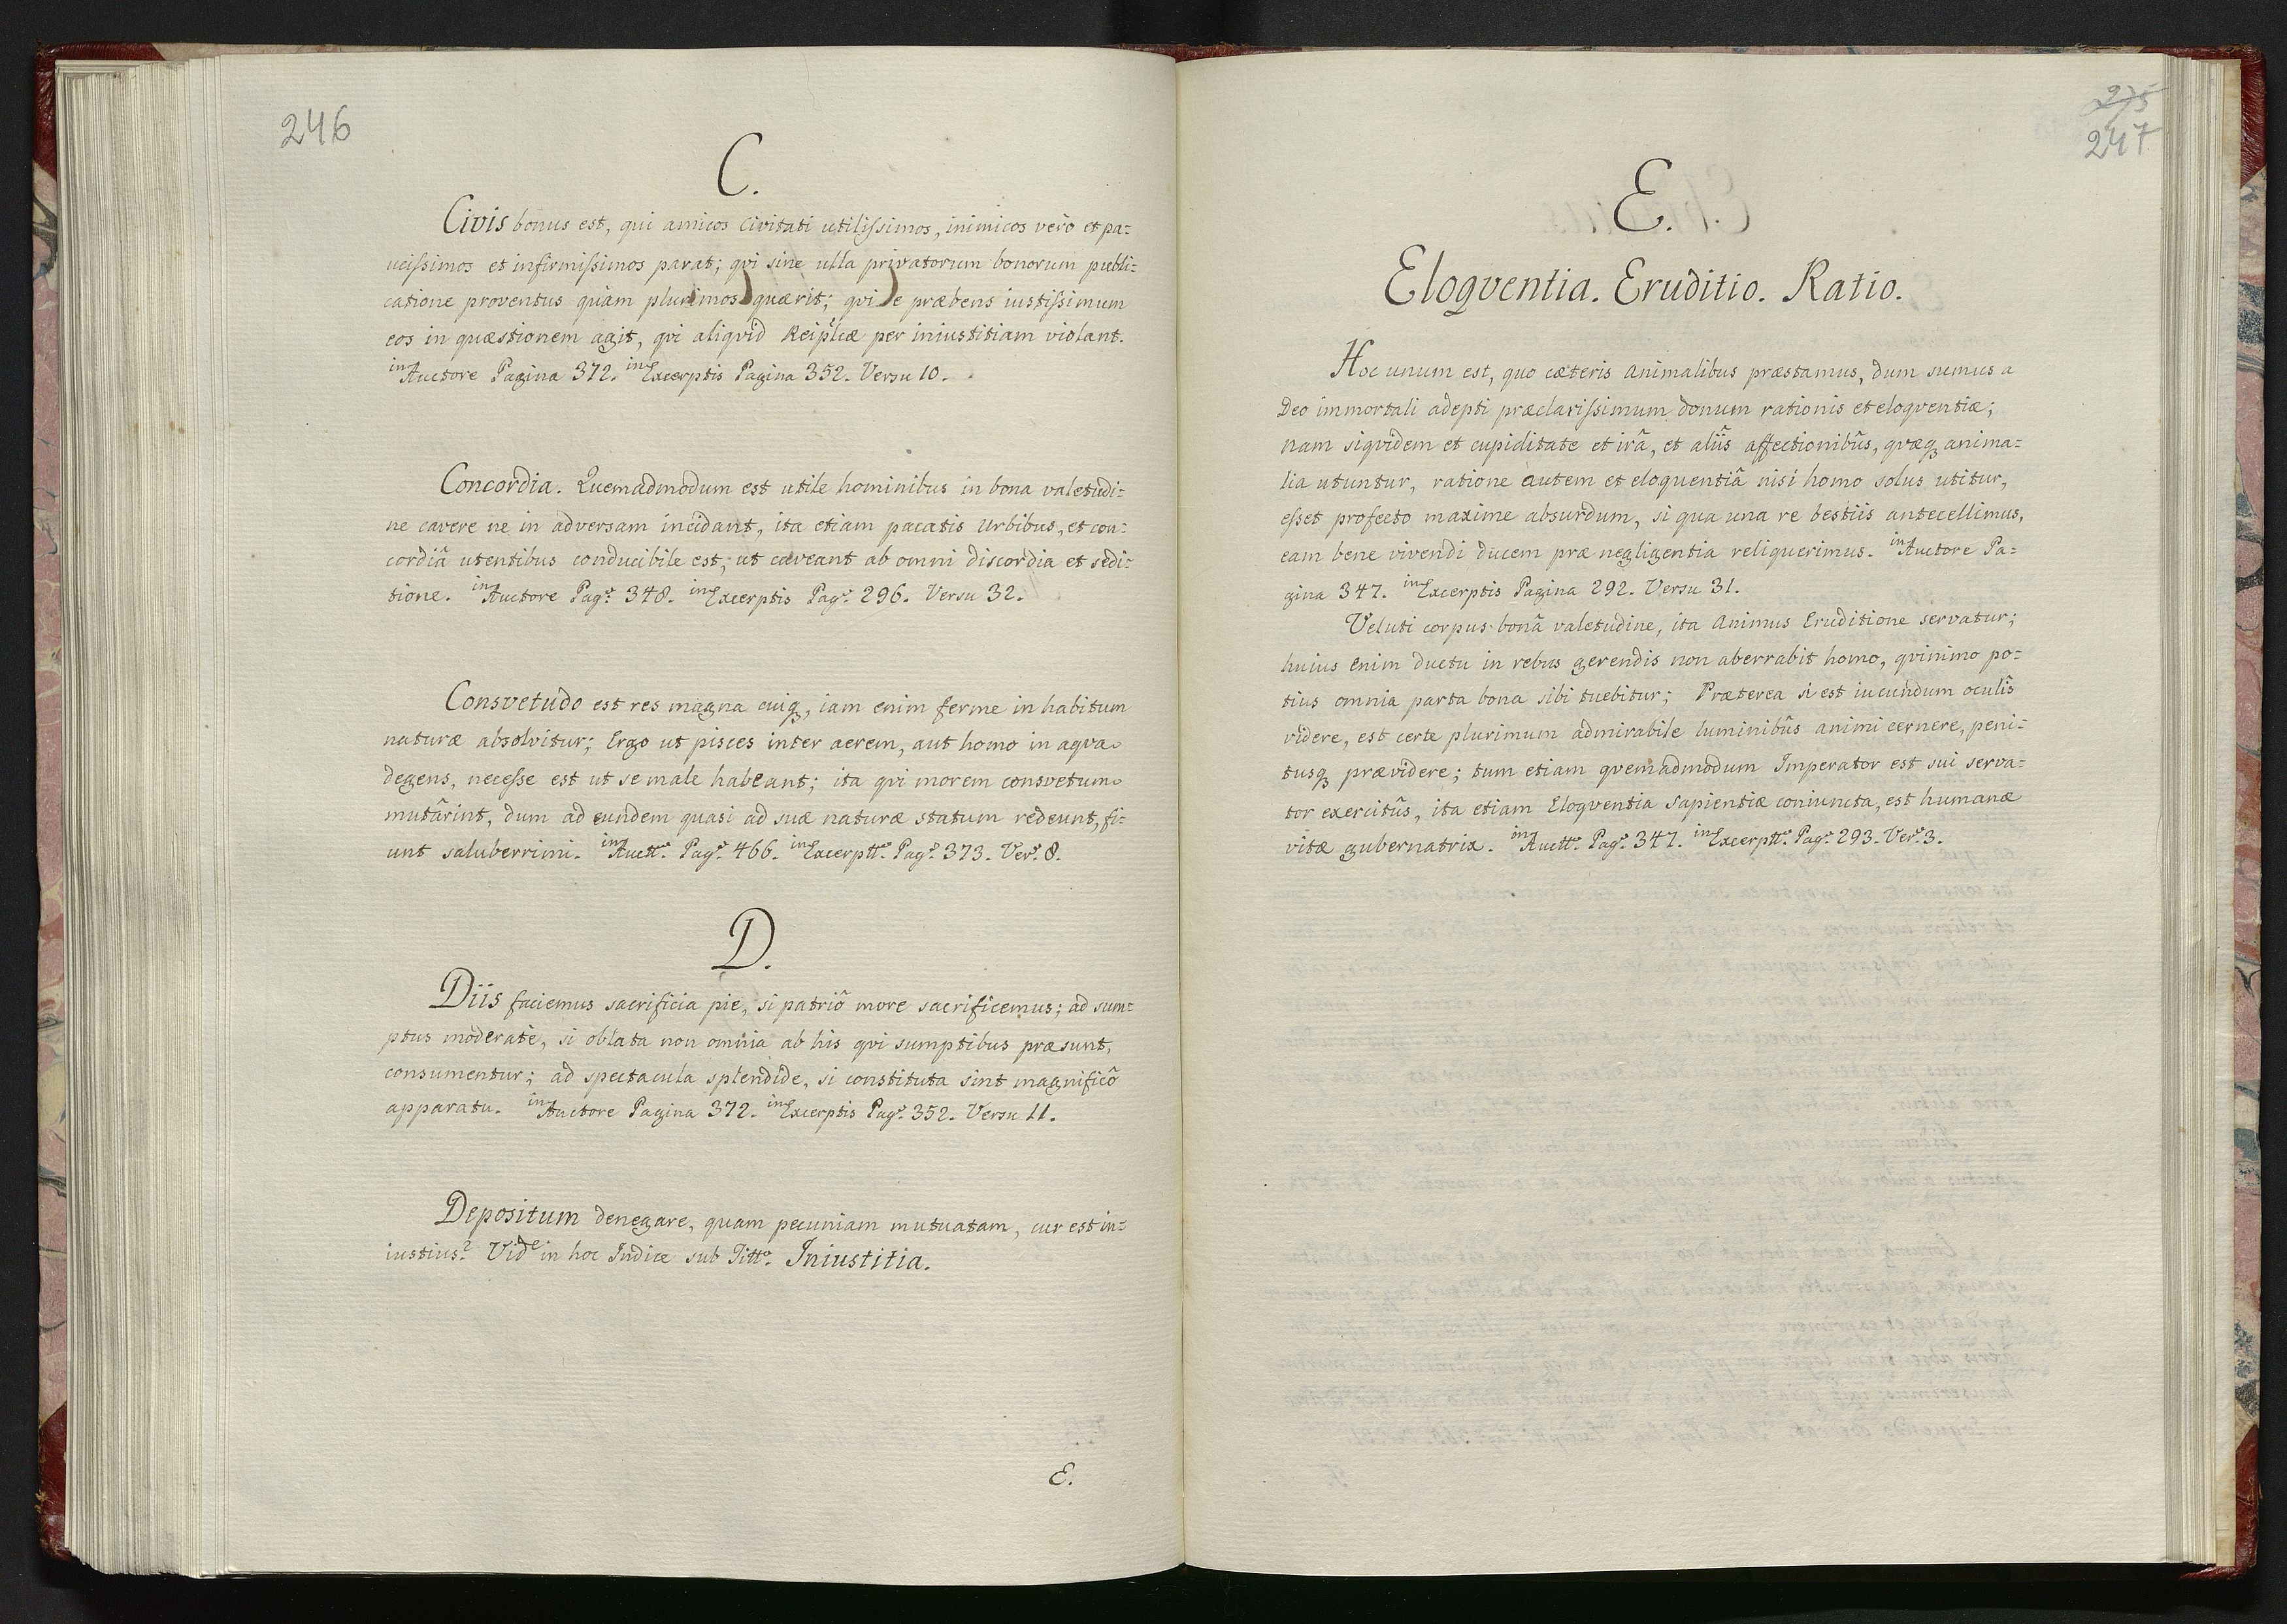 246
C.
Civis bonus est, qui amicos Civitati utilissimos, inimicos vero et pa=
ucissimos et infirmissimos parat; qvi sine ulla privatorum bonorum publi=
catione proventus quàm plurimos quærit; qvi se præbens iustissimum
eos in quæstionem agit, qvi aliqvid Reiplcæ per iniustitiam violant.
in Auctore Pagina 372. in Excerptis Pagina 352. Versu 10.
Concordia. Quemadmodum est utile hominibus in bona valetudi=
ne cavere ne in adversam incidant, ita etiam pacatis Urbibus, et con=
cordiâ utentibus conducibile est, ut caveant ab omni discordia et sedi=
tione. in Auctore Pag. 348. in Excerptis Pag. 296. Versu 32.
Consvetudo est res magna cuiqꝫ, iam enim ferme in habitum
naturæ absolvitur; Ergo ut pisces inter aerem, aut homo in aqva
degens, necesse est ut se male habeant; ita qvi morem consvetum
mutârint, dum ad eundem quasi ad suæ naturæ statum redeunt, fi=
unt saluberrimi. in Auctt. Pag. 466. in Excerptt. Pag. 373. Ver. 8.
D.
Diis faciemus sacrificia pie, si patriô more sacrificemus; ad sum=
ptus moderatè, si oblata non omnia ab his qvi sumptibus præsunt,
consumentur; ad spectacula splendide, si constituta sint magnificô
apparatu. in Auctore Pagina 372. in Excerptis Pag. 352. Versu 11.
Depositum denegare, quam pecuniam mutuatam, cur est in=
iustius? Vide in hoc Indice sub Titt. Iniustitia.
E.
275
247
E.
Eloqventia. Eruditio. Ratio.
Hoc unum est, quo cæteris animalibus præstamus, dum sumus a
Deo immortali adepti præclarissimum donum rationis et eloqventiæ;
nam siqvidem et cupiditate et irâ, et aliîs affectionibûs, qvæqꝫ anima=
lia utuntur, ratione autem et eloquentiâ nisi homo solus utitur,
esset profecto maxime absurdum, si qua una re bestiis antecellimus,
eam bene vivendi ducem præ negligentia reliquerimus. in Auctore Pa=
gina 347. in Excerptis Pagina 292. Versu 31.
Veluti corpus bonâ valetudine, ita Animus Eruditione servatur;
huius enim ductu in rebus gerendis non aberrabit homo, qvinimo po=
tius omnia parta bona sibi tuebitur; Præterea si est iucundum oculîs
videre, est certe plurimum admirabile luminibûs animi cernere, peni=
tusqꝫ prævidere; tum etiam qvemadmodum Imperator est sui serva=
tor exercitûs, ita etiam Eloqventia Sapientiæ coniuncta, est humanæ
vitæ gubernatrix. in Auctt. Pag. 347. in Excerptt. Pag. 293. Ver. 3.